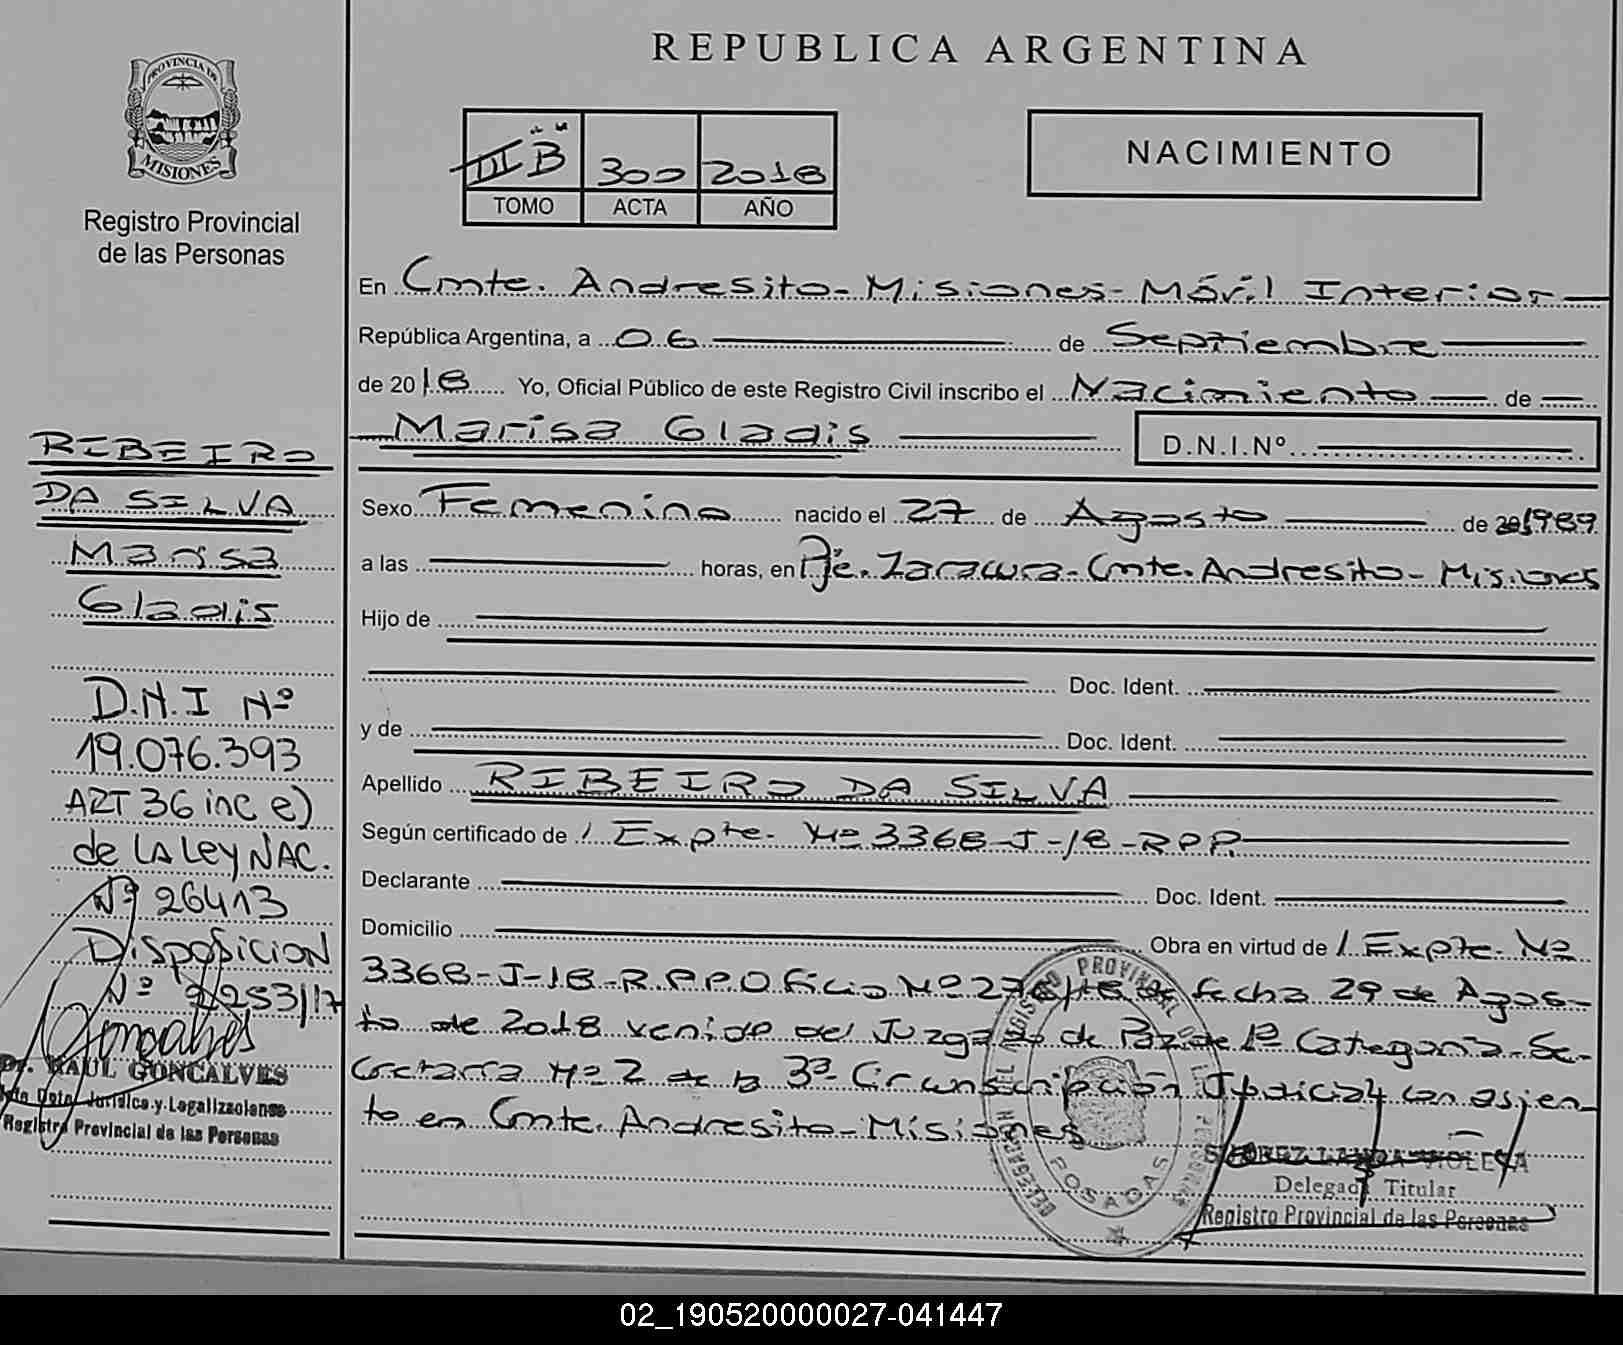 REPUBLICA ARGENTINA
PROVINCIA DE
MISIONES
Registro Provincial
de las Personas
III B 300 2018
TOMO ACTA AÑO
NACIMIENTO
En Cmte. Andresito - Misiones - Móvil Interior
República Argentina, a 06 de Septiembre
de 2018 Yo, Oficial Público de este Registro Civil inscribo el Nacimiento de
Marisa Gladis D.N.I.Nº
Sexo Femenino nacido el 27 de Agosto de 1989
a las horas, en Pje. Zaracura - Cmte. Andresito - Misiones
Hijo de
Doc. Ident.
y de Doc. Ident.
Apellido RIBEIRO DA SILVA
Según certificado de Expte. Nº 3368-J-18-RPP
Declarante Doc. Ident.
Domicilio Obra en virtud de Expte. Nº
3368-J-18-R.P.P Oficio Nº de fecha 29 de Agos-
to de 2018 venido del Juzgado de Paz de 1º Categoria - Se-
cretaria Nº 2 de la 3ª Circunscripción Judicial con asien-
to en Cmte. Andresito - Misiones
RIBEIRO
DA SILVA
Marisa
Gladis
D.N.I Nº
19.076.393
ART 36 inc e)
de LA Ley NAC.
Nº 26413
DISPOSICION
Nº 2253/17
Goncalves
Dr. RAUL GONCALVES
Jurídica y Legalizaciones
Registro Provincial de las Personas
POSADAS
SUAREZ LANDA VIOLETA
Delegada Titular
Registro Provincial de las Personas
02_190520000027-041447